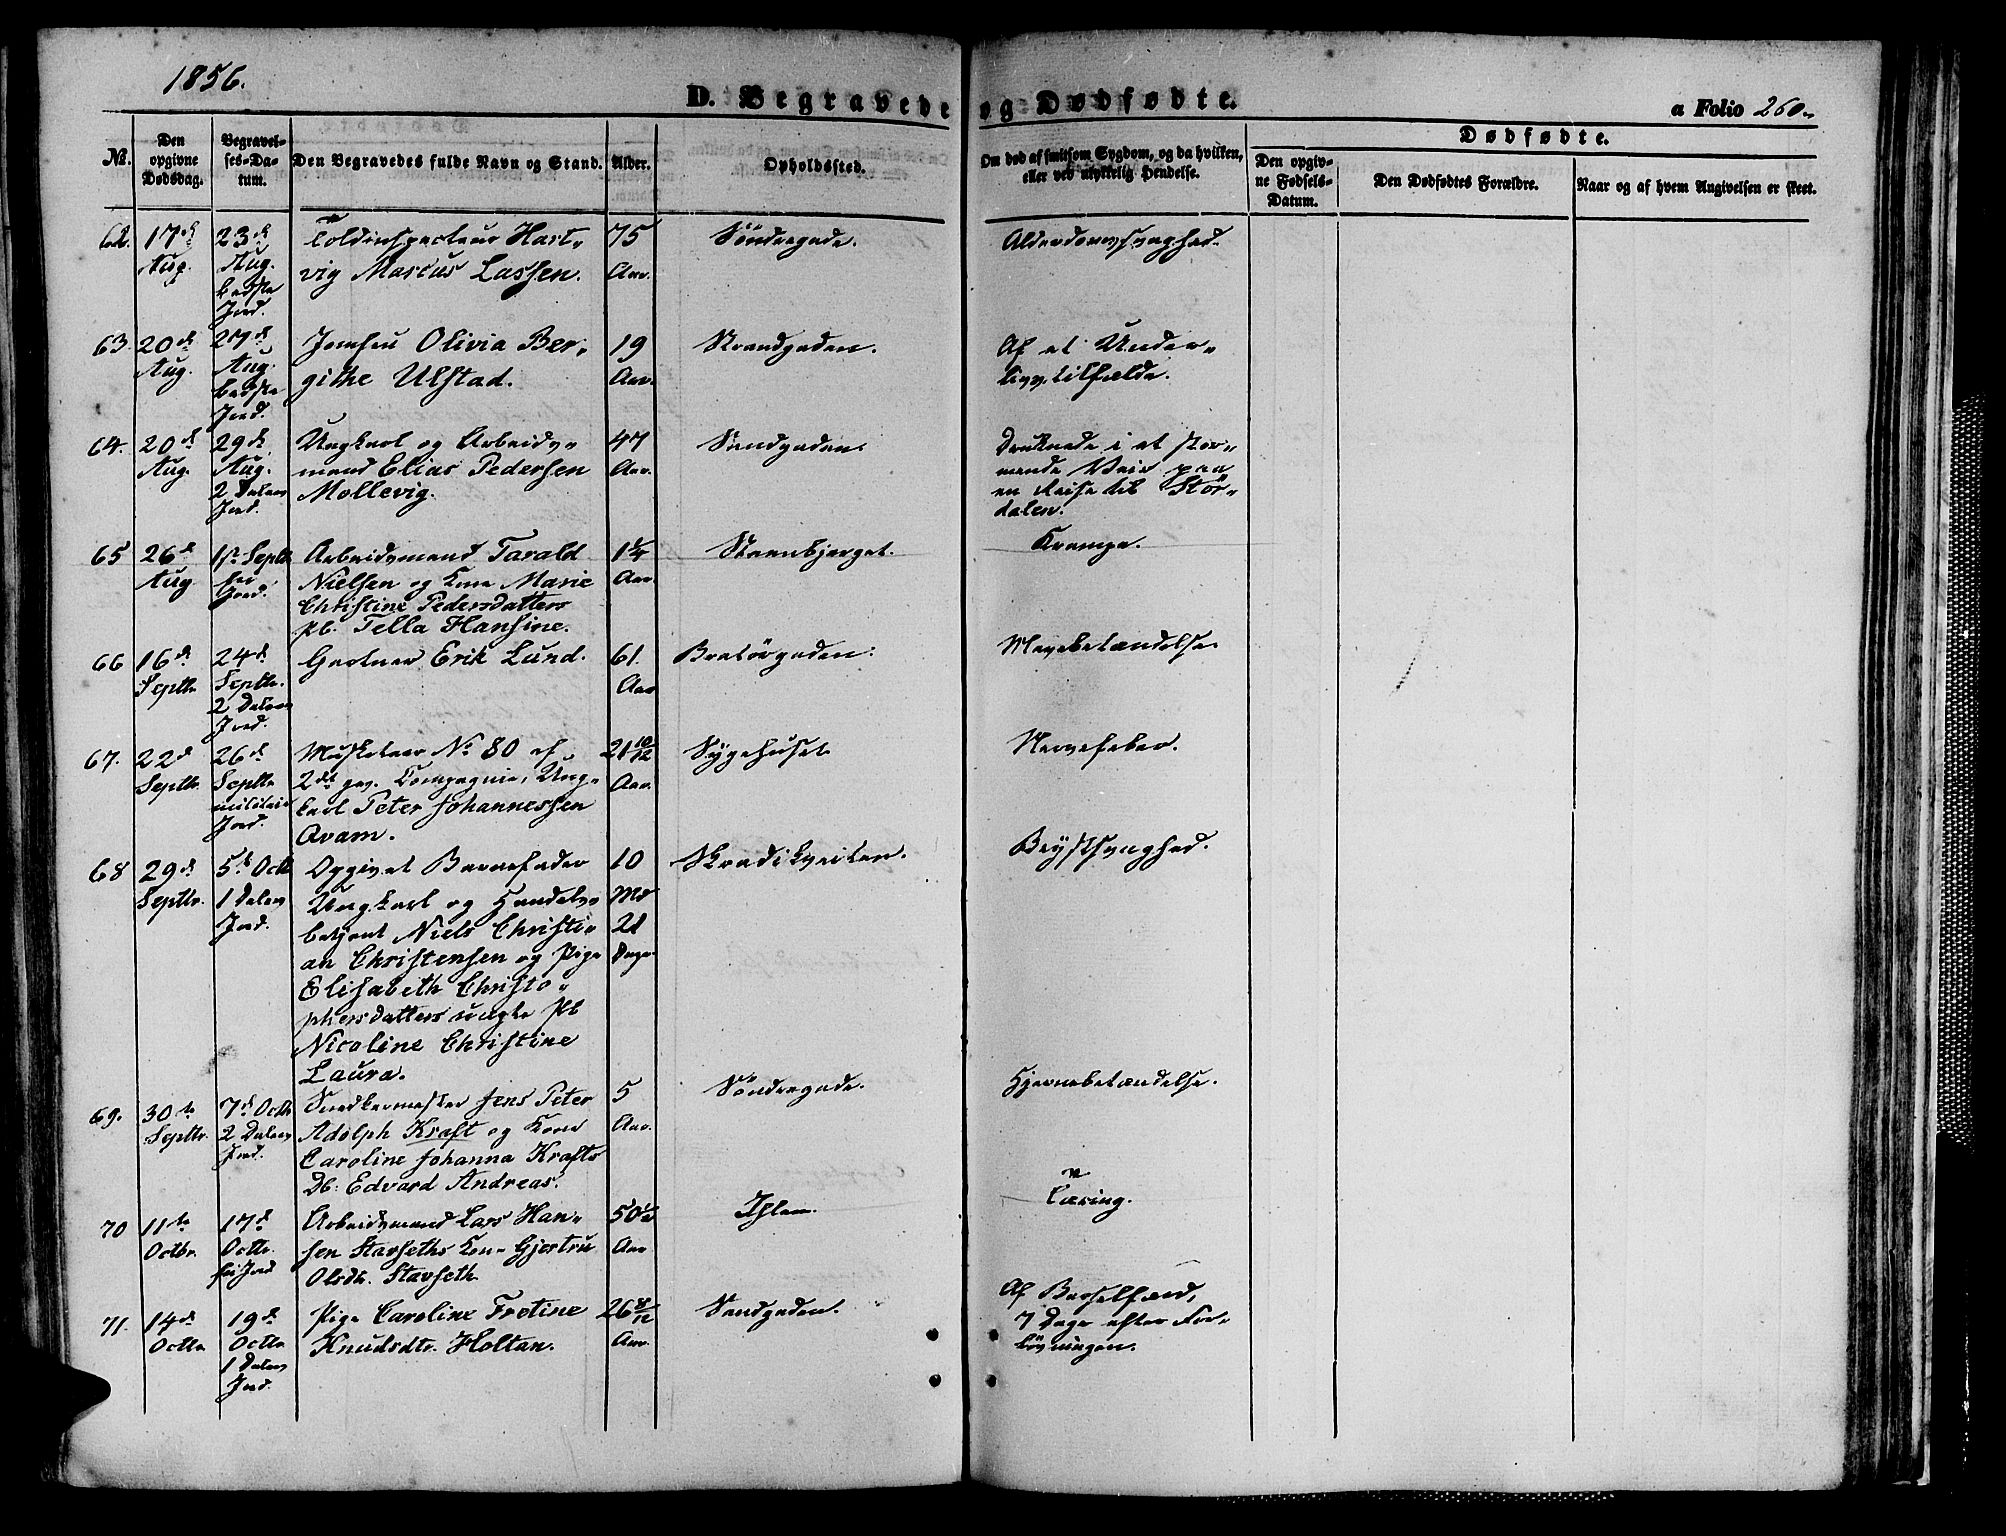 1856.
D. Begravede og Dødfødte.
a Folio 260.
No.
Den opgivne Dødsdag.
Begravelses-Datum.
Den Begravedes fulde Navn og Stand.
Alder.
Opholdssted.
Om død af smitsom Sygdom, og da hvilken, eller ved ulykkelig Hendelse.
Dødfødte.
Den opgivne Fødsels-Datum.
Den Dødfødtes Forældre.
Naar og af hvem Angivelsen er skeet.
62. 17de Aug. 23de Aug. bedste Jord.
Toldinspecteur Hart-
vig Marcus Lassen.
75 Aar.
Söndregade.
Alderdomssvaghed.
63. 20de Aug. 27de Aug. bedste Jord.
Jomfru Olivia Ber-
githe Ulstad.
19 Aar.
Strandgaden.
Af et Under-
livstilfælde.
64. 20de Aug. 29de Aug. 2 Dalers Jord.
Ungkarl og Arbeids-
mand Elias Pedersen
Mollevig.
47 Aar.
Sandgaden.
Druknede i et stor-
mende Veir paa
en Reise til Stör-
dalen.
65 26de Aug. 1ste Septbr fri Jord.
Arbeidsmand Tarald
Nielsen og Kone Marie
Christine Pedersdatters
Pb. Tella Hansine.
1 1/4 Aar.
Steenbjerget.
Krampe.
66 16de Septbr 24de Septbr. 2 Dalers Jord.
Gartner Erik Lund.
61. Aar
Bratörgaden.
Mavebetændelse.
67. 22de Septbr. 26de Septbr militair Jord.
Musketeer No 80 af
2det gev. Compagnie, Ung-
karl Peter Johannessen
Qvam.
21 10/12 Aar.
Sygehuset
Nervefeber.
68 29de Septbr. 5te Octbr 1 Dalers Jord.
Opgivet Barnefader
Ungkarl og Handels-
betjent Niels Christi-
an Christensen og Pige
Elisabeth Christo-
phersdatters uægte Pb
Nicoline Christine
Laura.
10 Md 21 Dage
Skradikveiten.
Brystsvaghed.
69. 30te Septbr. 7de Octbr 2 Dalers Jord.
Snedkermester Jens Peter
Adolph Kraft og Kone
Caroline Johanna Krafts
Db. Edvard Andreas.
5 Aar.
Söndregade.
Hjernebetændelse.
70 11te Octbr. 17de Octbr. fri Jord
Arbeidsmand Lars Han-
sen Stavseths Kone Gjertru
Olsdt. Stavseth
50 1/2 Aar
Ihlen.
Tæring.
71. 14de Octbr 19de Octbr 1 Dalers Jord.
Pige Caroline Fretine
Knudsdtr. Holtan.
26 8/12 Aar.
Sandgaden.
Af Barselfærd,
7 Dage efter For-
løsningen.